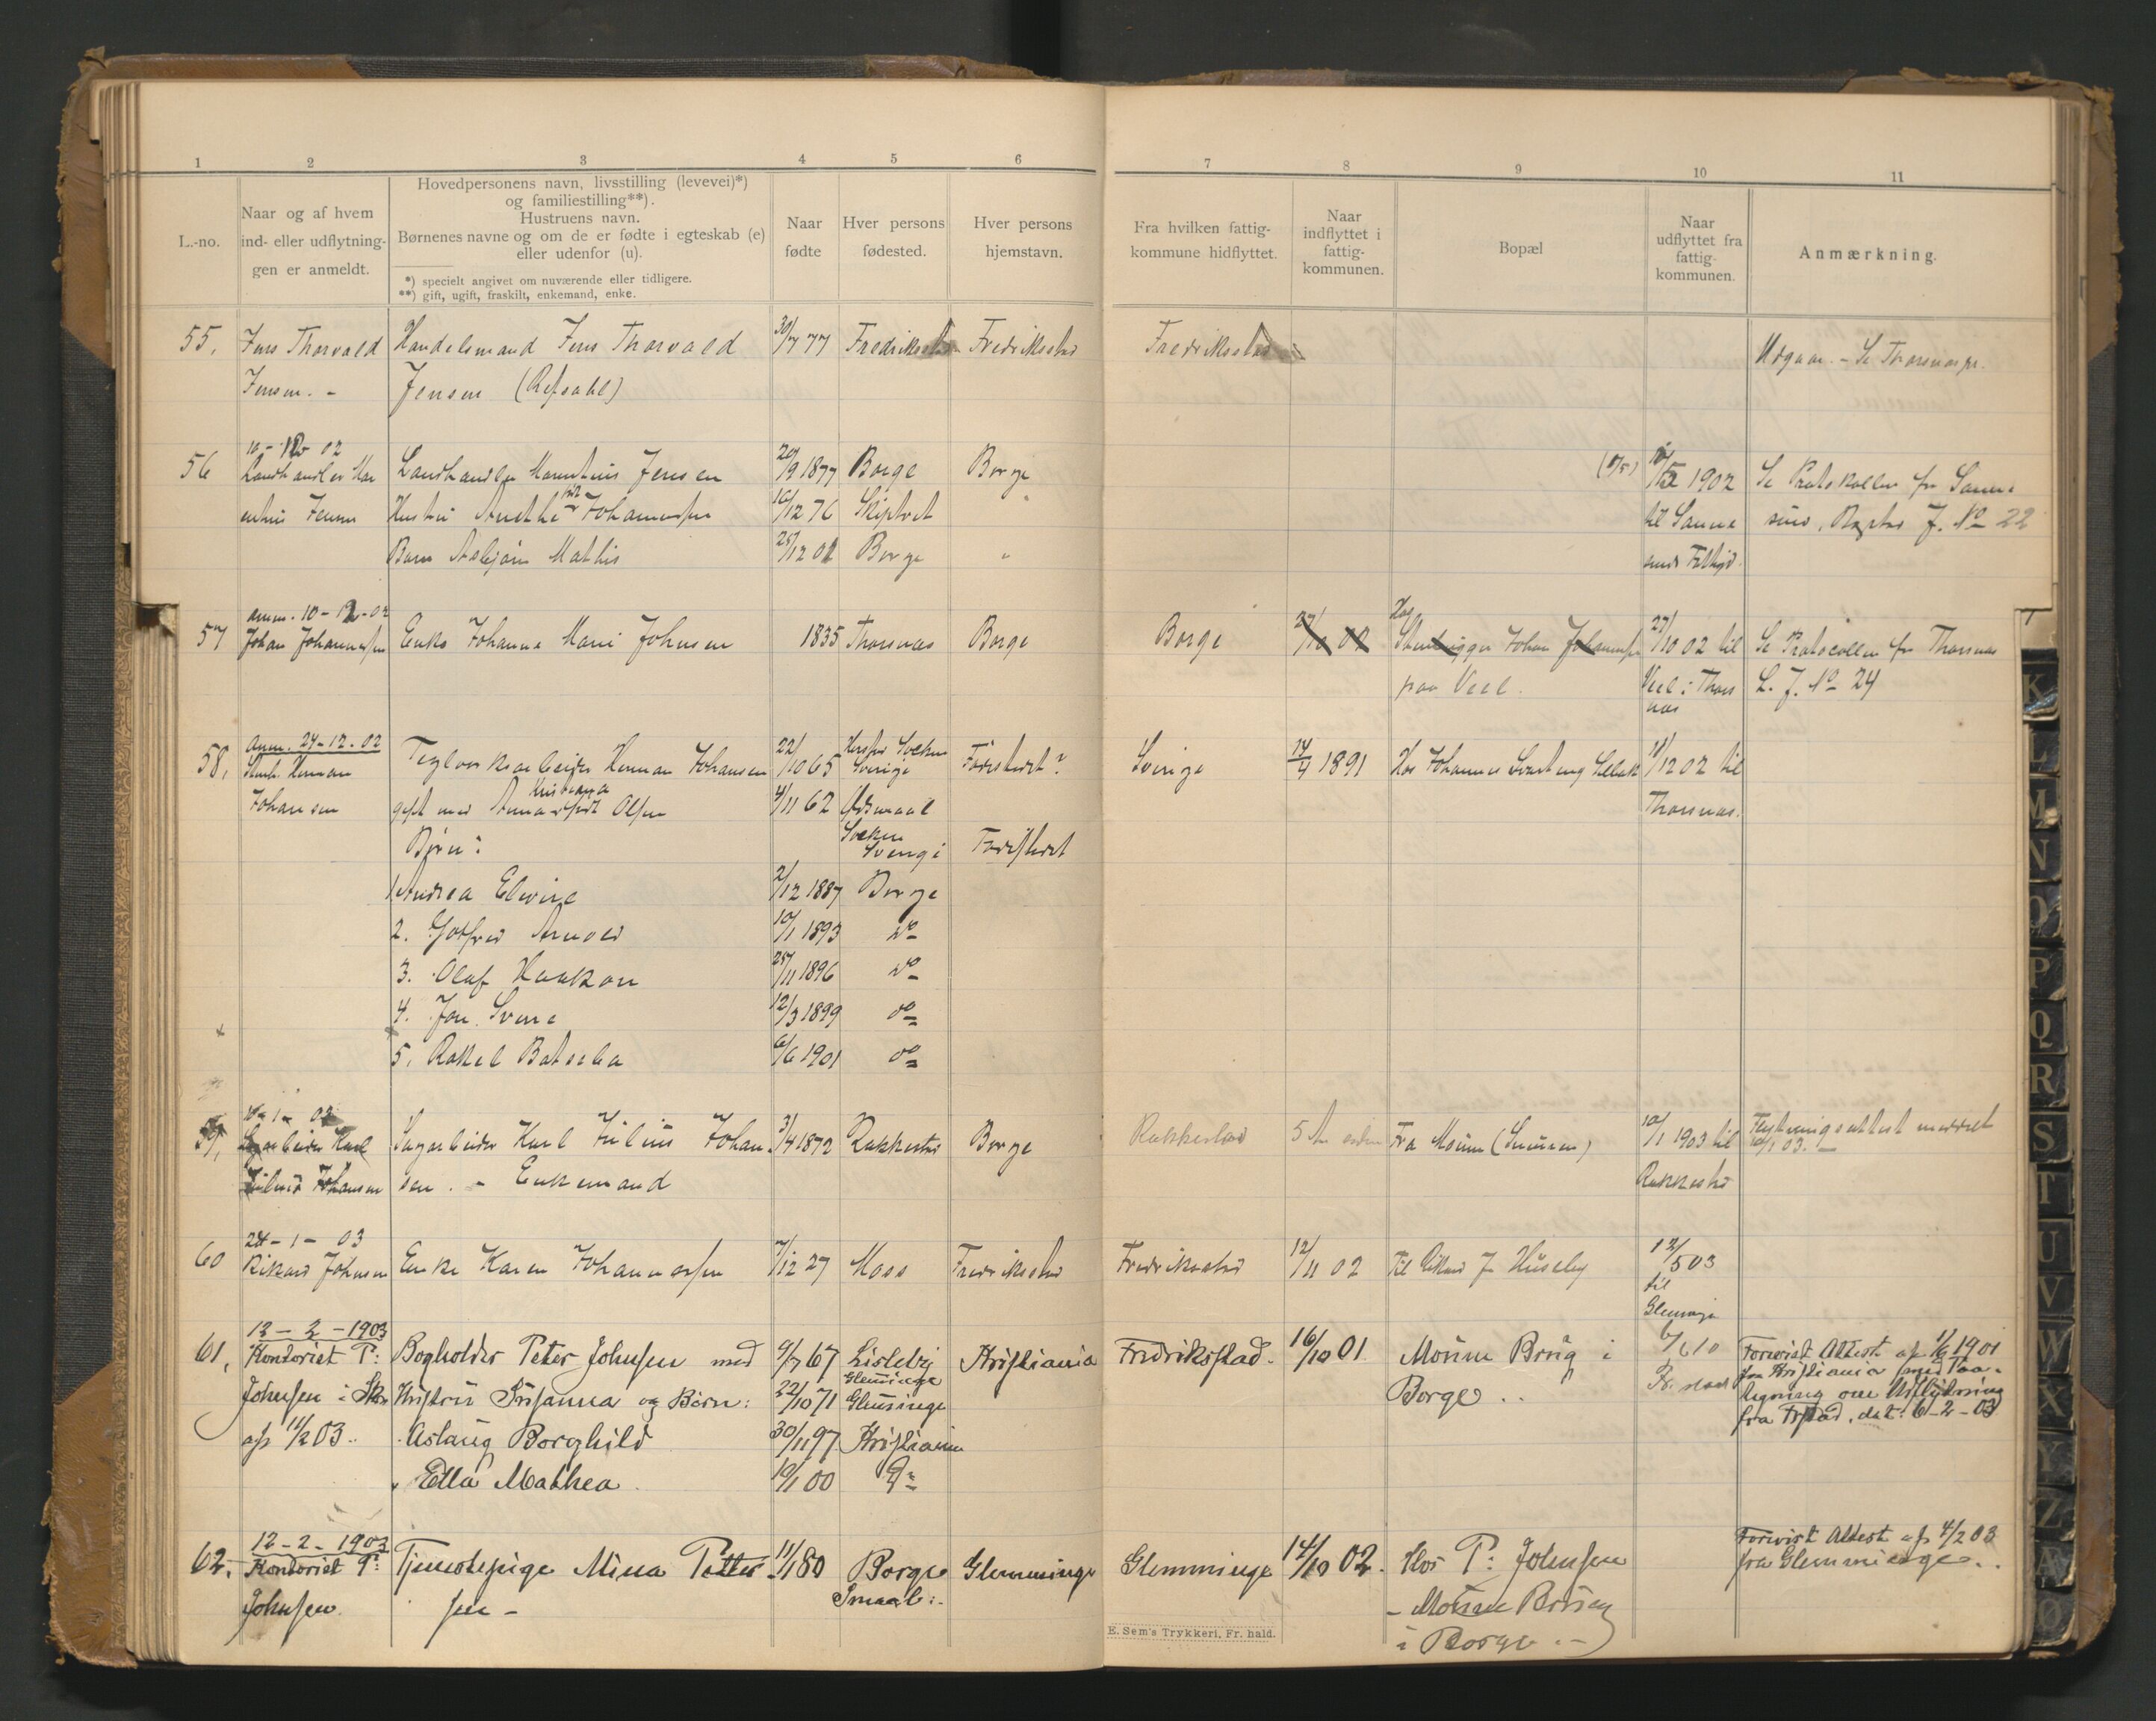 1 2 3 4 5 6 7 8 9 10 11
L.-no.
Naar og af hvem
ind- eller udflytnin-
gen er anmeldt.
Hovedpersonens navn, livsstilling (levevei)*)
og familiestilling**).
Hustruens navn.
Børnenes navne og om de er fødte i egteskab (e)
eller udenfor (u).
*) specielt angivet om nuværende eller tidligere.
**) gift, ugift, fraskilt, enkemand, enke.
Naar
fødte
Hver persons
fødested.
Hver persons
hjemstavn.
Fra hvilken fattig-
kommune hidflyttet.
Naar
indflyttet i
fattig-
kommunen.
Bopæl
Naar
udflyttet fra
fattig-
kommunen.
Anmærkning.
55, Jens Thorvald Handelsmand Jens Thorvald 30/7 77 Fredriksstad Fredriksstad Fredriksstad Udgaar. - Se Thorsnæs pr.
Jensen. - Jensen (Refsahl)
10-12-02
56 Landhandler Mar Landhandler Marenthius Jensen 20/9 1877 Borge Borge (1/5) 10/5 1902 Se Protokollen for Sanne
enthius Jensen Hustru Anethe født Johannessen 16/12 76 Skiptvet " til Sanne sund, Register J. No 22
Barn Asbjørn Mathis 25/12 01 Borge " sund Feltbyd.
anm. 10-12-02
57 Johan Johannessen Enke Johanne Marie Johnsen 1835 Thorsnæs Borge Borge 27/10 02 Hos Stenhugger Johan Johannessen 27/10 02 til Se Protocollen for Thorsnæs
paa Veel. Veel i Thors L. J. No 24
næs
Anm. 24-12-02
58, Stenh. Herman Teglverksarbeider Herman Johansen 22/10 65 Socken Sverige Fødestedet? Sverige 14/4 1891 Hos Johannes Svarteng Sellebk 11/12 02 til
Johansen gift med Anna Kristiana født Olsen 4/11 62 Ødsmaal Thorsnæs.
Børn: Socken Sverige Fødestedet
1 Andrea Elvine 2/12 1887 Borge
2. Gotfred Arnold 10/1 1893 do
3. Olaf Haakon 25/11 1896 do
4. Jon Sverre 12/3 1899 do
5. Rakel Batseba 6/6 1901 do
59, Sagarbeider Karl Sagarbeider Karl Julius Johan- 3/4 1872 Rakkestad Borge Rakkestad 5 Aar siden Fra Moum 10/1 1903 til Flytningsattest meddelt
Julius Johansen sen. - Enkemand Rakkestad 10/1 03. -
24-1-03
60 Rikard Johnsen Enke Karen Johannessen 7/12 27 Moss Fredriksstad Fredriksstad 12/11 02 Til Rikard J. Huseby 12/5 03
til
Glemminge
12-2-1903
61, Kontorist P: Bogholder Peter Johnsen med 9/7 67 Lisleby Kristiania Fredriksstad. 16/10 01 Moum Brug i 6/6 10 Forevist Attest af 1/6 1901
Glemminge
Johnsen i Skr. Hustru Susanna og Børn: 22/10 71 Glemminge Borge .. Fr. stad fra Kristiania med Paa-
af 11/2 03.. Aslaug Borghild 30/11 97 Kristiania tegning om Udflytning
" Edla Mathea 19/1 00 Do fra Frstad, dat: 6-2-03
12-2-1903
62. Kontorist P: Tjenestepige Mina Petter- 11/1 80 Borge Glemminge Glemminge 14/10 02. Hos P: Johnsen Forevist Attest af 4/2 03
Johnsen sen - Smaal:- - Moum Brug fra Glemminge..
i Borge. -
E. Sem's Trykkeri, Fr. hald.
K
L
M
N
O
P
Q
R
S
T
U
V
W
X
Y
Z
Æ
Ø